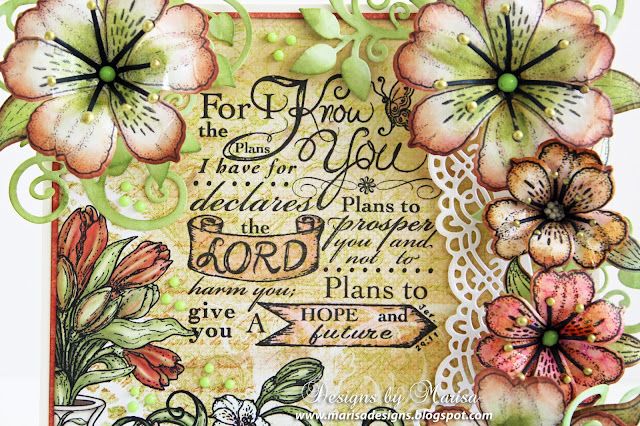 For I Know
the Plans You
I have for
declares Plans to
the prosper
LORD you and
not to
harm you; Plans to
give HOPE and Jer
you A future 29:11
Designs by Marisa
www.marisadesigns.blogspot.com